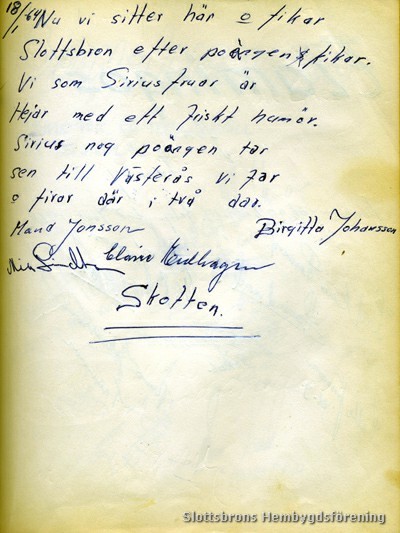 18/1-64 Nu vi sitter här o fikar
Slottsbron efter poängen fikar.
Vi som Siriusfruar är
Hejar med ett friskt humör.
Sirius nog poängen tar
sen till Västerås vi far
o firar där i två dar.
Maud Jonsson Birgitta Johansson
Claire
Skotten.
Slottsbrons Hembygdsförening